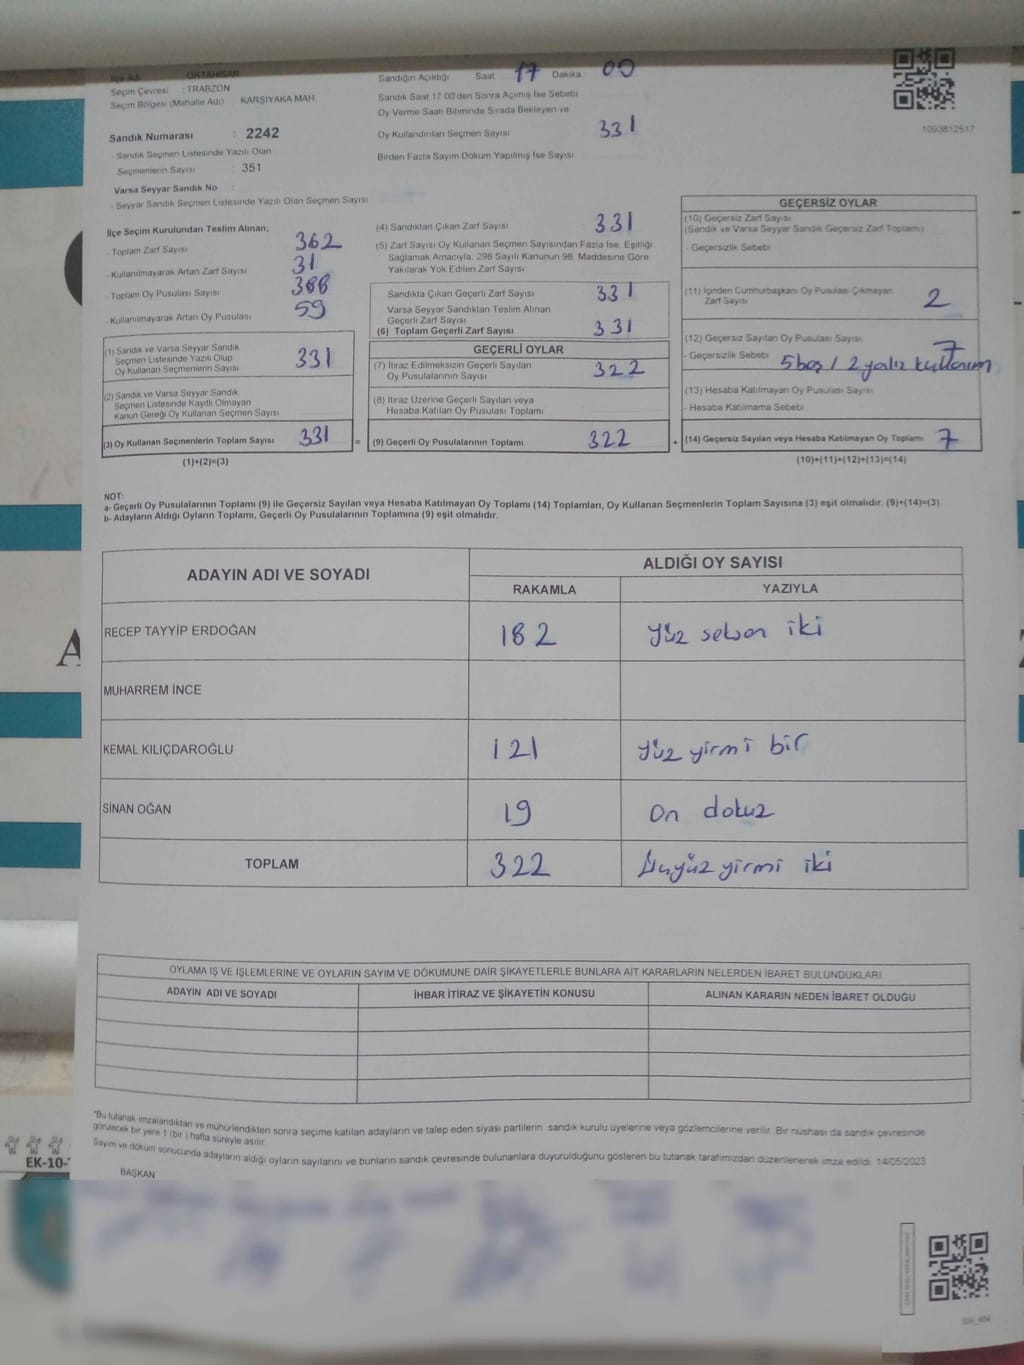 İlçe Adı ORTAHİSAR
Seçim Çevresi : TRABZON
Seçim Bölgesi (Mahalle Adı) KARŞIYAKA MAH.
Sandık Numarası : 2242
- Sandık Seçmen Listesinde Yazılı Olan
Seçmenlerin Sayısı : 351
Varsa Seyyar Sandık No :
- Seyyar Sandık Seçmen Listesinde Yazılı Olan Seçmen Sayısı
Sandığın Açıldığı Saat 17 Dakika 00
Sandık Saat 17:00'den Sonra Açılmış İse Sebebi
Oy Verme Saati Bitiminde Sırada Bekleyen ve
Oy Kullandırılan Seçmen Sayısı 331
Birden Fazla Sayım Döküm Yapılmış İse Sayısı
1093812517
İlçe Seçim Kurulundan Teslim Alınan;
- Toplam Zarf Sayısı 362
- Kullanılmayarak Artan Zarf Sayısı 31
- Toplam Oy Pusulası Sayısı 388
- Kullanılmayarak Artan Oy Pusulası 59
(1) Sandık ve Varsa Seyyar Sandık
Seçmen Listesinde Yazılı Olup
Oy Kullanan Seçmenlerin Sayısı 331
(2) Sandık ve Varsa Seyyar Sandık
Seçmen Listesinde Kayıtlı Olmayan
Kanun Gereği Oy Kullanan Seçmen Sayısı
(3) Oy Kullanan Seçmenlerin Toplam Sayısı 331
(1)+(2)=(3)
(4) Sandıktan Çıkan Zarf Sayısı 331
(5) Zarf Sayısı Oy Kullanan Seçmen Sayısından Fazla İse, Eşitliği
Sağlamak Amacıyla, 298 Sayılı Kanunun 98. Maddesine Göre
Yakılarak Yok Edilen Zarf Sayısı
Sandıkta Çıkan Geçerli Zarf Sayısı 331
Varsa Seyyar Sandıktan Teslim Alınan
Geçerli Zarf Sayısı
(6) Toplam Geçerli Zarf Sayısı 331
GEÇERLİ OYLAR
(7) İtiraz Edilmeksizin Geçerli Sayılan
Oy Pusulalarının Sayısı 322
(8) İtiraz Üzerine Geçerli Sayılan veya
Hesaba Katılan Oy Pusulası Toplamı
= (9) Geçerli Oy Pusulalarının Toplamı 322
GEÇERSİZ OYLAR
(10) Geçersiz Zarf Sayısı
(Sandık ve Varsa Seyyar Sandık Geçersiz Zarf Toplamı)
- Geçersizlik Sebebi
(11) İçinden Cumhurbaşkanı Oy Pusulası Çıkmayan
Zarf Sayısı 2
(12) Geçersiz Sayılan Oy Pusulası Sayısı 7
- Geçersizlik Sebebi 5 boş / 2
(13) Hesaba Katılmayan Oy Pusulası Sayısı
- Hesaba Katılmama Sebebi
+ (14) Geçersiz Sayılan veya Hesaba Katılmayan Oy Toplamı 7
(10)+(11)+(12)+(13)=(14)
NOT:
a- Geçerli Oy Pusulalarının Toplamı (9) ile Geçersiz Sayılan veya Hesaba Katılmayan Oy Toplamı (14) Toplamları, Oy Kullanan Seçmenlerin Toplam Sayısına (3) eşit olmalıdır. (9)+(14)=(3)
b- Adayların Aldığı Oyların Toplamı, Geçerli Oy Pusulalarının Toplamına (9) eşit olmalıdır.
ADAYIN ADI VE SOYADI ALDIĞI OY SAYISI
RAKAMLA YAZIYLA
RECEP TAYYİP ERDOĞAN 182 yüz seksen iki
MUHARREM İNCE
KEMAL KILIÇDAROĞLU 121 yüz yirmi bir
SİNAN OĞAN 19 on dokuz
TOPLAM 322 Üçyüz yirmi iki
OYLAMA İŞ VE İŞLEMLERİNE VE OYLARIN SAYIM VE DÖKÜMÜNE DAİR ŞİKAYETLERLE BUNLARA AİT KARARLARIN NELERDEN İBARET BULUNDUKLARI
ADAYIN ADI VE SOYADI İHBAR İTİRAZ VE ŞİKAYETİN KONUSU ALINAN KARARIN NEDEN İBARET OLDUĞU
"Bu tutanak imzalandıktan ve mühürlendikten sonra seçime katılan adayların ve talep eden siyasi partilerin sandık kurulu üyelerine veya gözlemcilerine verilir. Bir nüshası da sandık çevresinde
görülecek bir yere 1 (bir) hafta süreyle asılır.
Sayım ve döküm sonucunda adayların aldığı oyların sayılarını ve bunların sandık çevresinde bulunanlara duyurulduğunu gösteren bu tutanak tarafımızdan düzenlenerek imza edildi. 14/05/2023
BAŞKAN
EK-10-